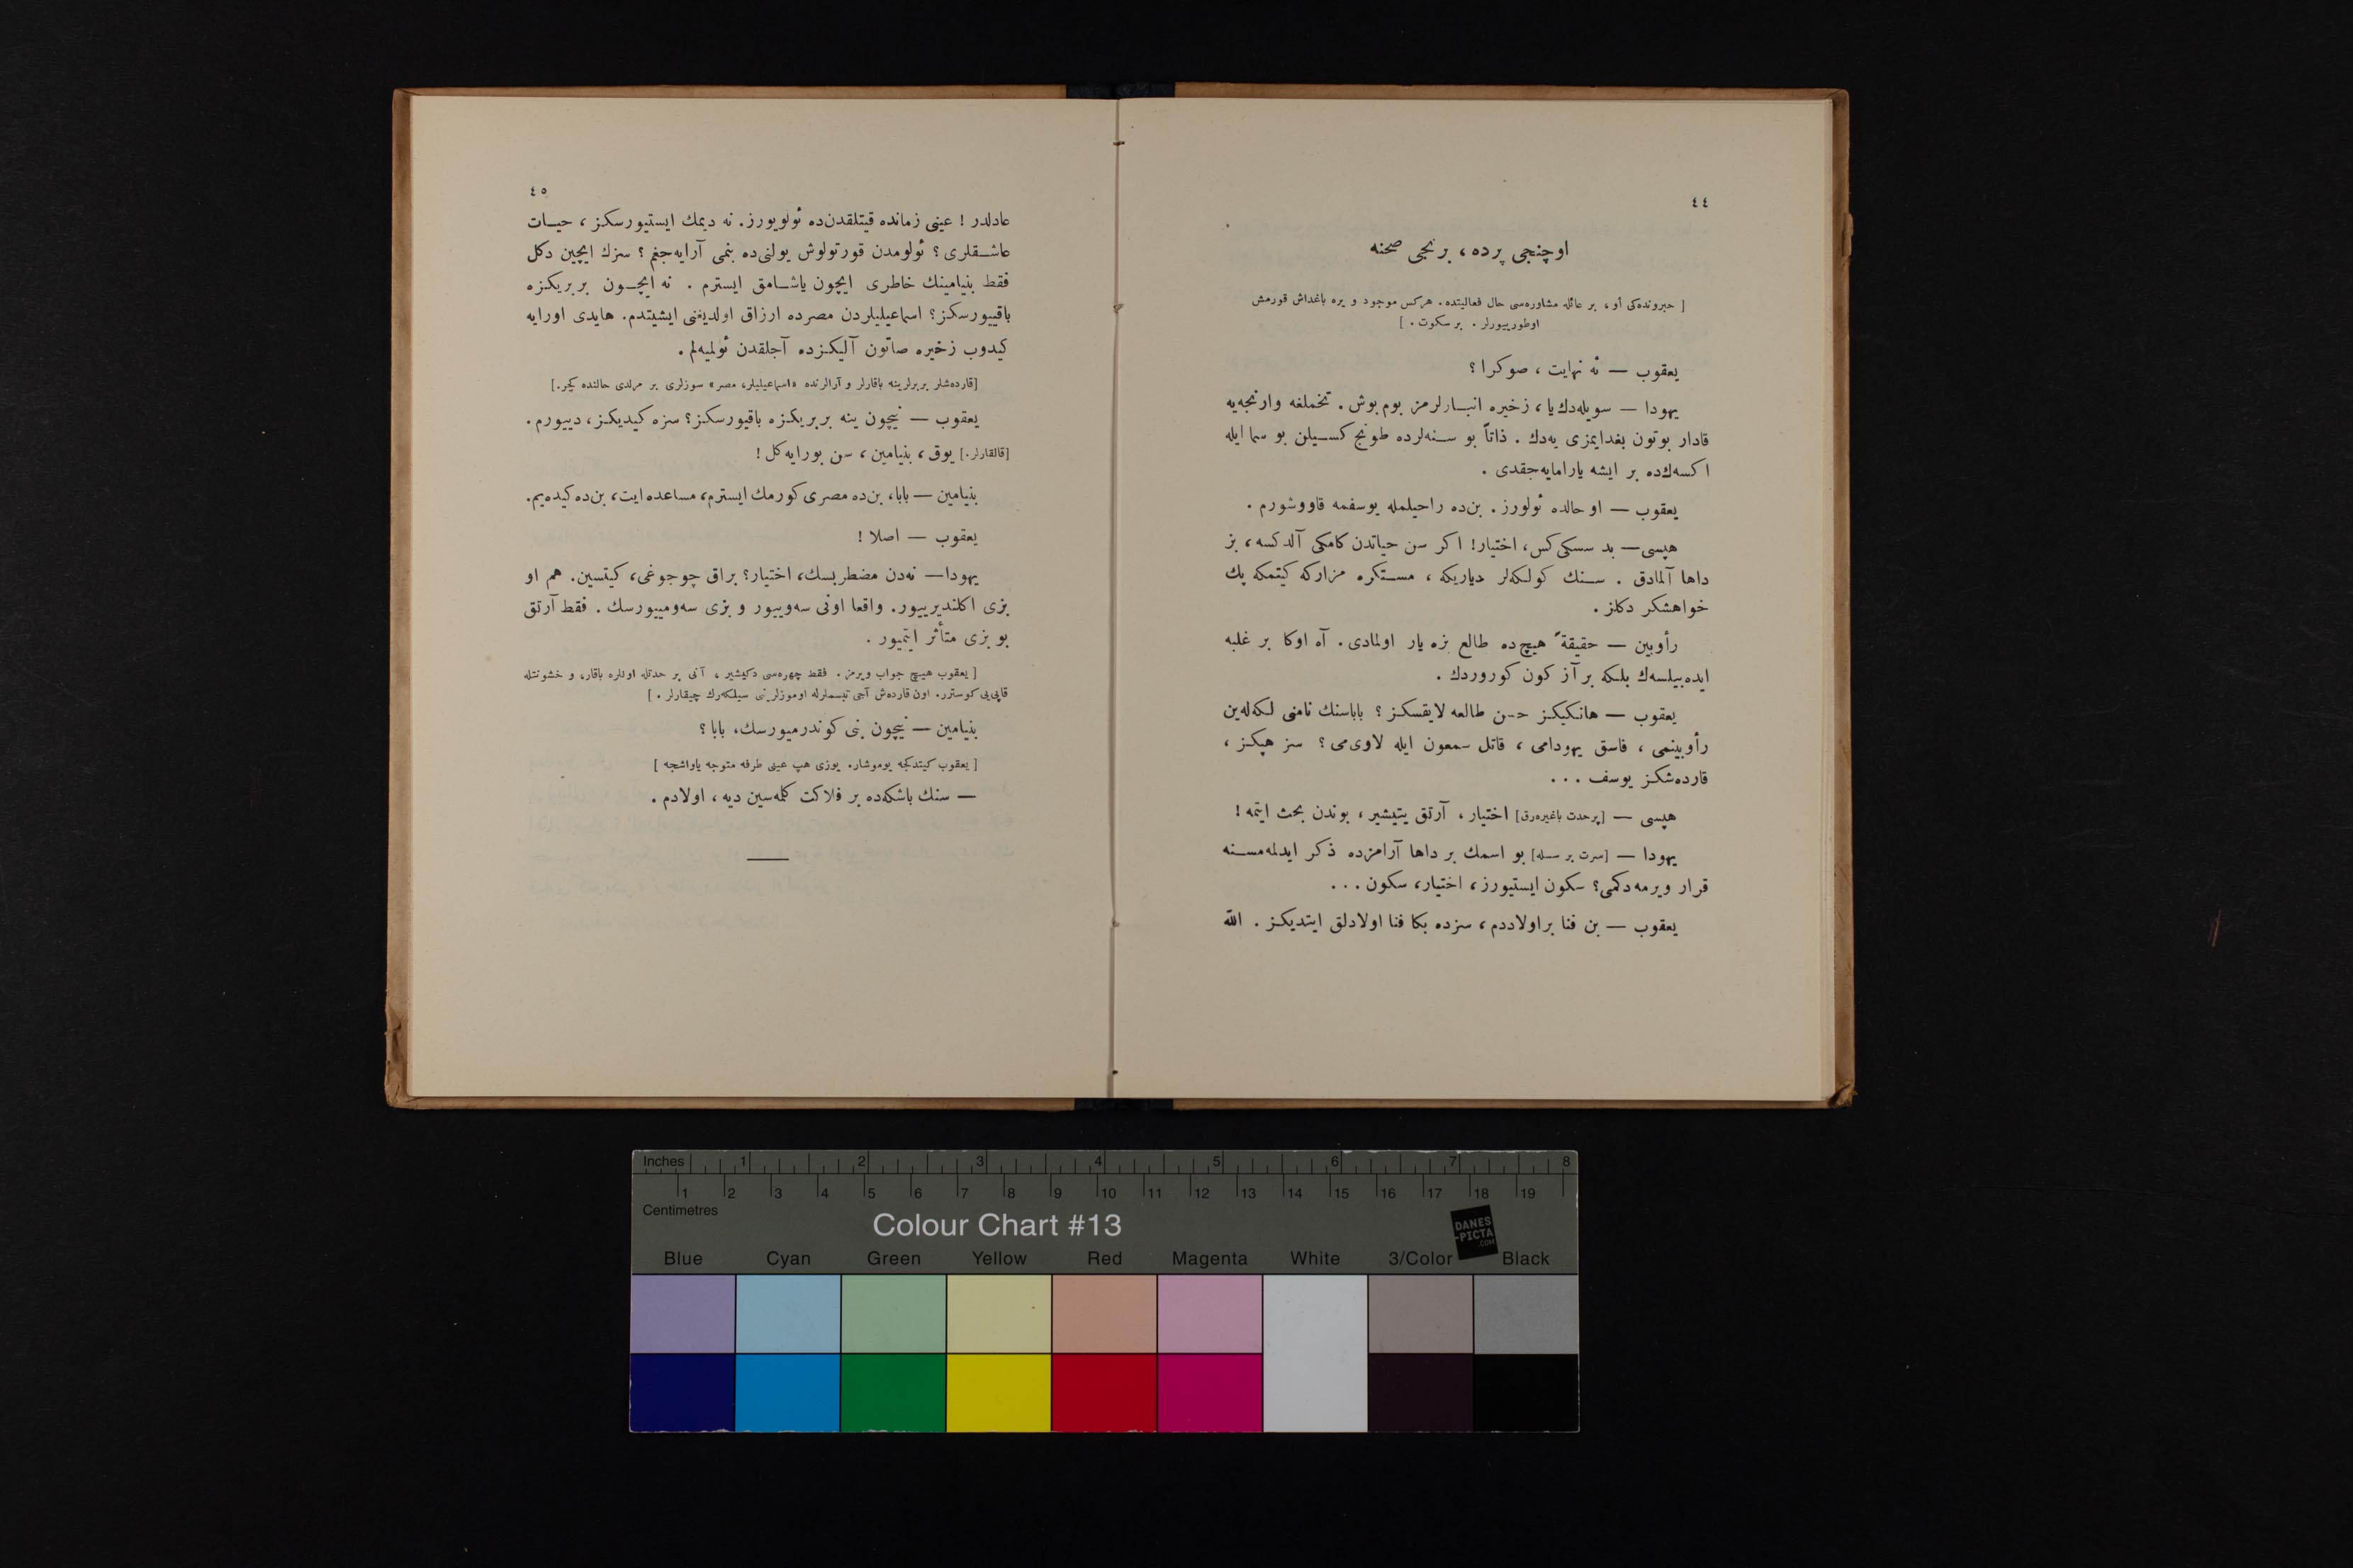 ٤٤
اوچنجی پرده ، برنجی صحنه
[ حبرونده‌كی أو ، بر عائله مشاوره‌سی حال فعالیتده . هركس موجود و یره باغداش قورمش
اوطورییورلر . بر سكوت . ]
یعقوب — نه نهایت ، صوكرا ؟
یهودا — سویله‌دك یا ، زخیره انبـارلرمز بوم بوش . تخملغه وارنجه‌یه
قادار بوتون بغدایمزی یه‌دك . ذاتاً بو سـنه‌لرده طونج كسـیلن بو سما ایله
اكسه‌ك‌ده بر ایشه یارامایه‌جقدی .
یعقوب — او حالده ئولورز . بن‌ده راحیلمله یوسفمه قاووشورم .
هپسی — بد سسكی كس ، اختیار ! اكر سن حیاتدن كامكی آلدكسه ، بز
داها آلمادق . سـنك كولكه‌لر دیاریكه ، مسـتكره مزاركه كیتمكه پك
خواهشكر دكلز .
رأوبین — حقیقةً هیچ‌ده طالع بزه یار اولمادی . آه اوكا بر غلبه
ایده‌بیلسه‌ك بلكه بر آز كون كوروردك .
یعقوب — هانكیكز حسن طالعه لایقسكز ؟ باباسنك نامنی لكه‌له‌ین
رأوبینمی ، فاسق یهودامی ، قاتل سمعون ایله لاوی‌می ؟ سز هپكز ،
قارده‌شكز یوسف . . .
هپسی — [پرحدت باغیره‌رق] اختیار ، آرتق یتیشیر ، بوندن بحث ایتمه !
یهودا — [سرت بر سسله] بو اسمك بر داها آرامزده ذكر ایدلمه‌مسـنه
قرار ویرمه‌دكمی؟ سكون ایستیورز ، اختیار، سكون . . .
یعقوب — بن فنا براولاددم ، سزده بكا فنا اولادلق ایتدیكـز . الله
٤٥
عادلدر ! عینی زمانده قیتلقدن‌ده ئولویورز. نه دیمك ایستیورسكز ، حیـات
عاشـقلری ؟ ئولومدن قورتولوش یولنی‌ده بنمی آرایه‌جغم ؟ سزك ایچین دكل
فقط بنیامینك خاطری ایچون یاشـامق ایسترم . نه ایچـون بربریكزه
باقییورسكز؟ اسماعیلیلردن مصرده ارزاق اولدیغنی ایشیتدم. هایدی اورایه
كیدوب زخیره صاتون آلیكـزده آجلقدن ئولمیه‌لم .
[قارده‌شلر بربرلرینه باقارلر و آرالرنده «اسماعیلیلر، مصر» سوزلری بر مرلدی حالنده كچر.]
یعقوب — نیچون ینه بربریكـزه باقیورسكـز؟ سزه كیدیكـز ، دییورم .
[قالقارلر.] یوق ، بنیامین ، سن بورایه كل !
بنیامین — بابا، بن‌ده مصری كورمك ایسترم، مساعده ایت، بن‌ده كیده‌یم.
یعقوب — اصلا !
یهودا— نه‌دن مضطربسك، اختیار؟ براق چوجوغی، كیتسین. هم او
بزی اكلندیرییور. واقعا اونی سه‌وییور و بزی سه‌ومییورسك . فقط آرتق
بو بزی متأثر ایتمیور .
[ یعقوب هیچ جواب ویرمز . فقط چهره‌سی دكیشیر ، آنی بر حدتله اونلره باقار، و خشونتله
قاپی‌یی كوسترر. اون قارده‌ش آجی تبسملرله اوموزلرینی سیلكه‌رك چیقارلر . ]
بنیامین — نیچون بنی كوندرمیورسك، بابا ؟
[ یعقوب كیتدكجه یوموشار. یوزی هپ عینی طرفه متوجه یاواشجه ]
— سنك باشكه‌ده بر فلاكت كلمه‌سین دیه ، اولادم .
Inches 1 2 3 4 5 6 7 8
1 2 3 4 5 6 7 8 9 10 11 12 13 14 15 16 17 18 19
Centimetres
Colour Chart #13
DANES
-PICTA
.COM
Blue Cyan Green Yellow Red Magenta White 3/Color Black